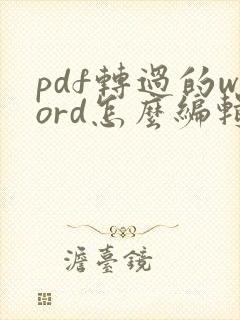 pdf轉過的w
ord怎麼編輯
澹臺鏡